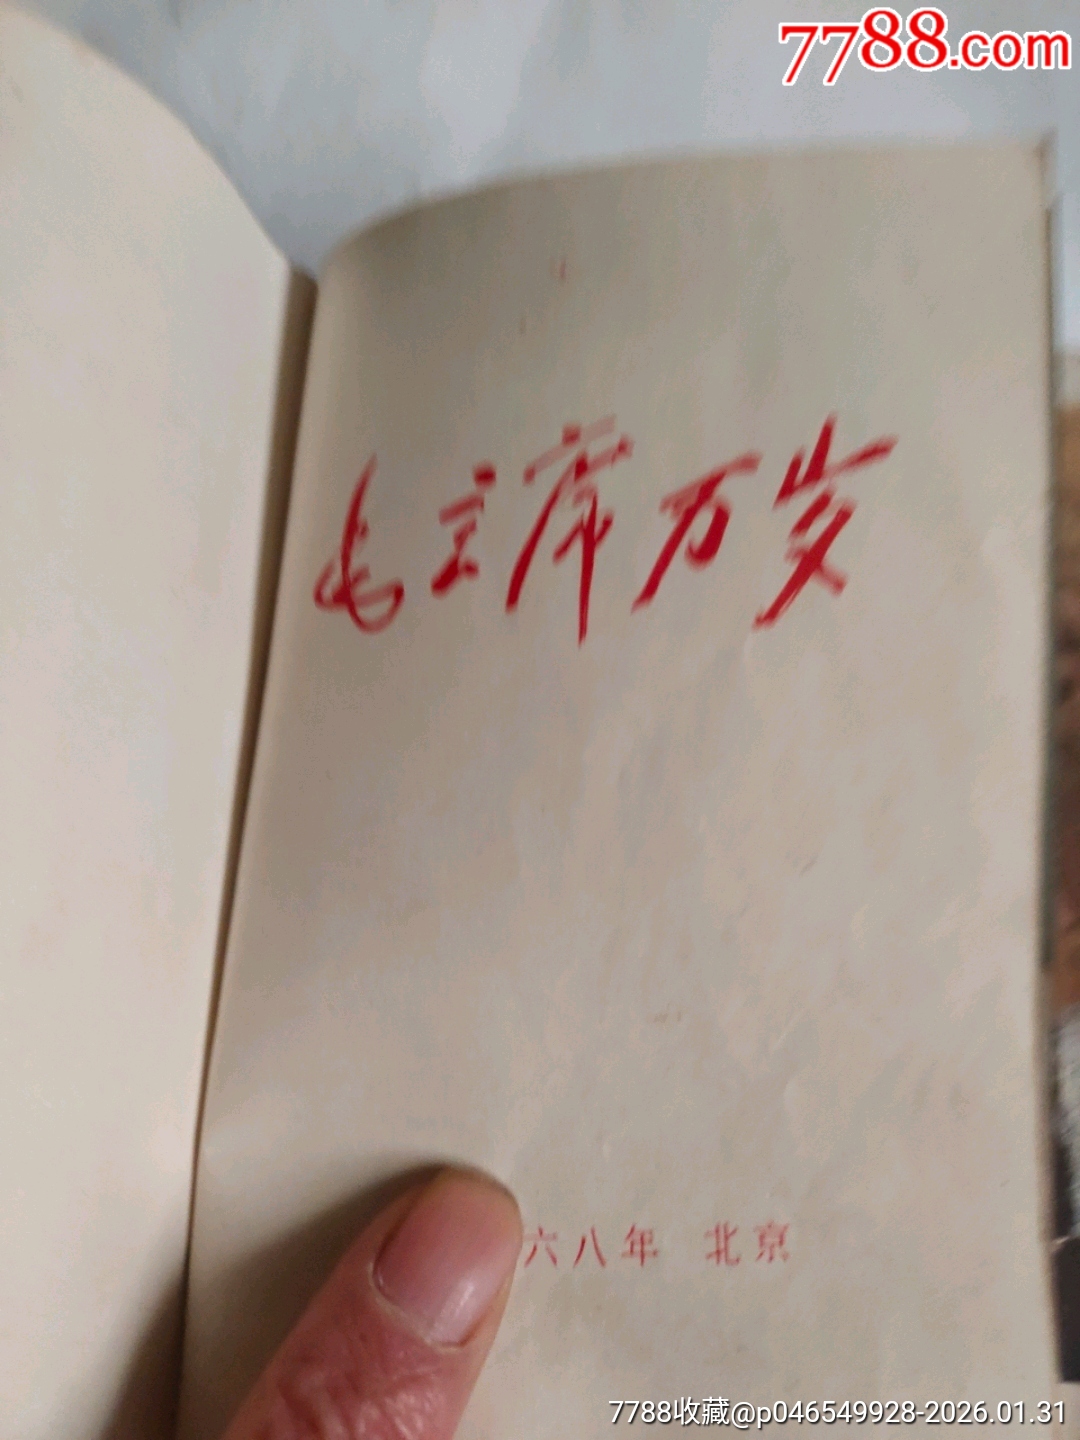 7788.com
毛主席万岁
六八年 北京
7788收藏@p046549928-2026.01.31